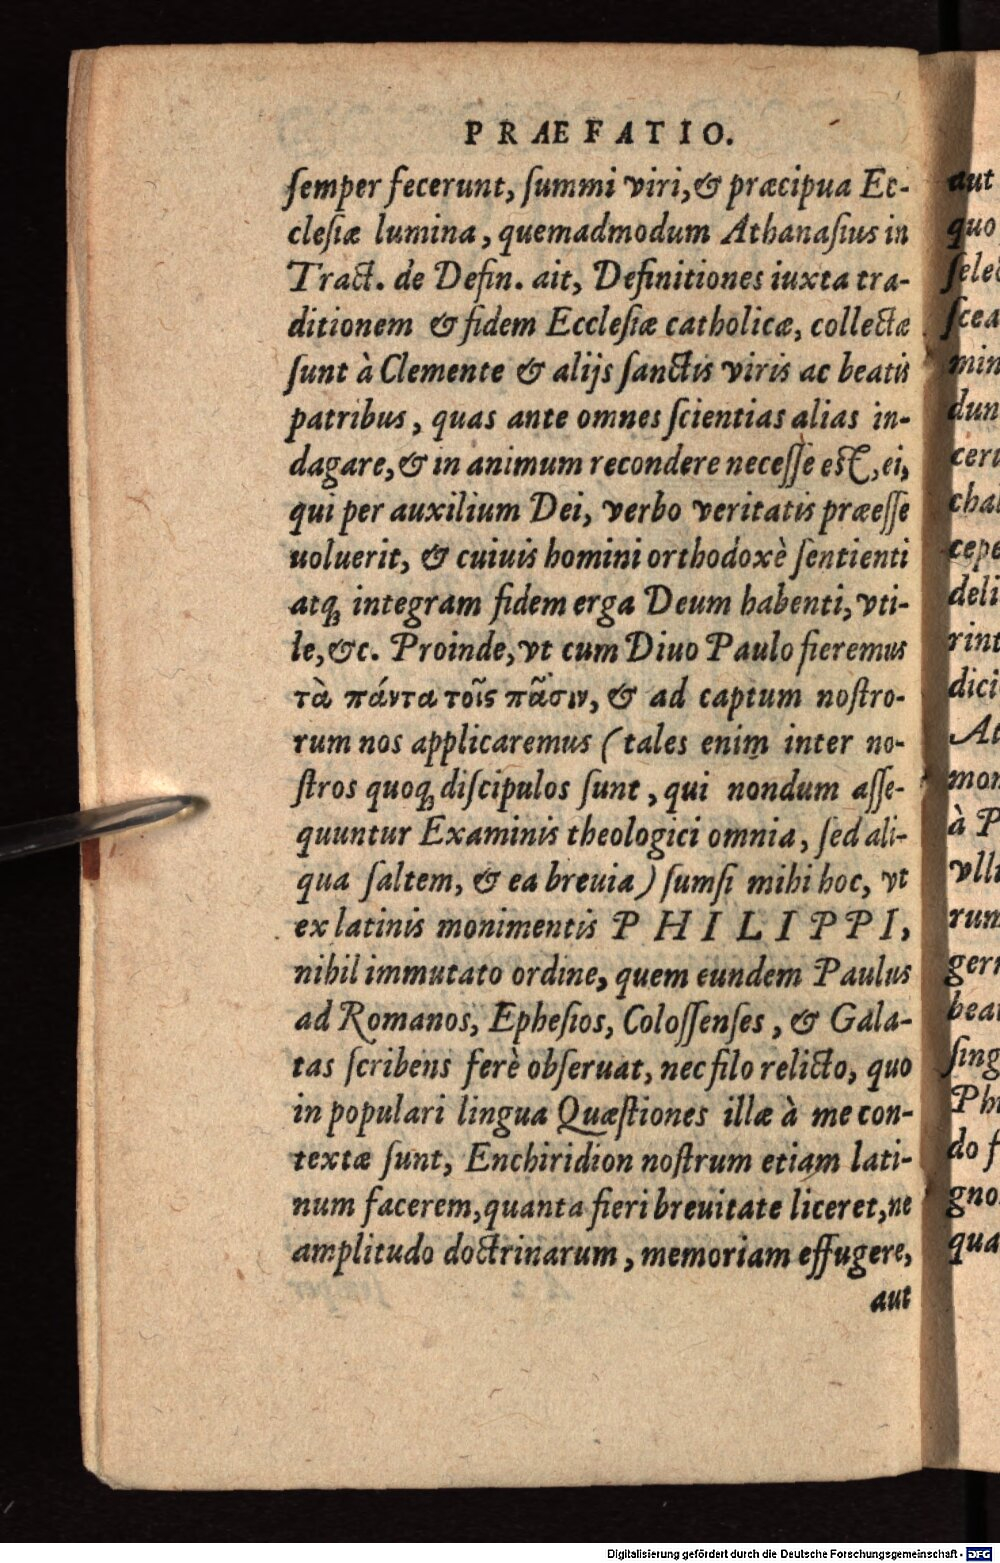 PRÆFATIO.
ſemper fecerunt, ſummi viri, & præcipua Ec-
cleſiæ lumina, quemadmodum Athanaſius in
Tract. de Defin. ait, Definitiones iuxta tra-
ditionem & fidem Eccleſiæ catholicæ, collectæ
ſunt à Clemente & alijs ſanctis viris ac beatis
patribus, quas ante omnes ſcientias alias in-
dagare, & in animum recondere neceſſe eſt, ei,
qui per auxilium Dei, verbo veritatis præeſſe
uoluerit, & cuiuis homini orthodoxè ſentienti
atq́; integram fidem erga Deum habenti, vti-
le, &c. Proinde, vt cum Diuo Paulo fieremus
τὰ πάντα τοῖς πᾶσιν, & ad captum noſtro-
rum nos applicaremus (tales enim inter no-
ſtros quoq́; diſcipulos ſunt, qui nondum aſſe-
quuntur Examinis theologici omnia, ſed ali-
qua ſaltem, & ea breuia) ſumſi mihi hoc, vt
ex latinis monimentis PHILIPPI,
nihil immutato ordine, quem eundem Paulus
ad Romanos, Epheſios, Coloſſenſes, & Gala-
tas ſcribens ferè obſeruat, nec filo relicto, quo
in populari lingua Quæſtiones illæ à me con-
textæ ſunt, Enchiridion noſtrum etiam lati-
num facerem, quanta fieri breuitate liceret, ne
amplitudo doctrinarum, memoriam effugere,
aut
aut
quo
ſelec
ſcea
min
dun
ceru
chal
cepe
deli
rint
dici
At
mon
à P
vlli
run
gerr
beat
ſing
Phi
do f
gno
qua
Digitalisierung gefördert durch die Deutsche Forschungsgemeinschaft - DFG